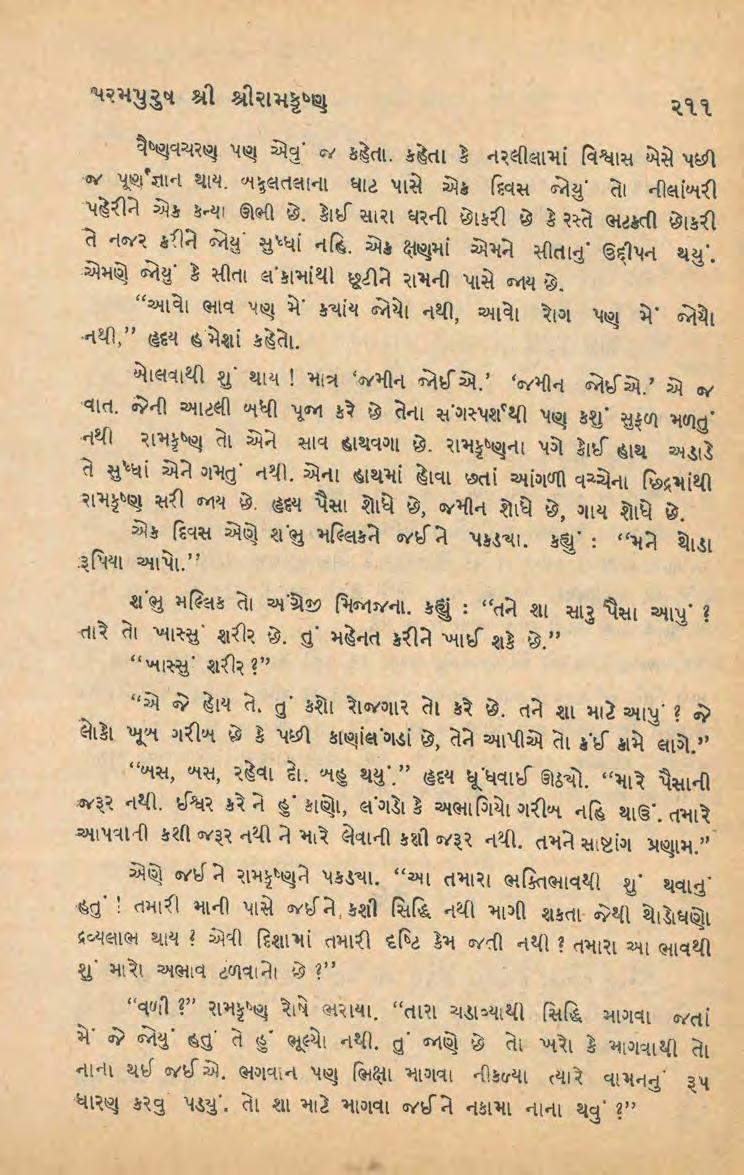 પરમપુરુષ શ્રી શ્રીરામકૃષ્ણ ૨૧૧
વૈષ્ણવચરણ પણ એવું જ કહેતા. કહેતા કે નરલીલામાં વિશ્વાસ બેસે પછી
જ પૂર્ણજ્ઞાન થાય. બકુલતલાના ઘાટ પાસે એક દિવસ જોયું તો નીલાંબરી
પહેરીને એક કન્યા ઊભી છે. કોઈ સારા ઘરની છોકરી છે કે રસ્તે ભટકતી છોકરી
તે નજર કરીને જોયું સુધ્ધાં નહિ. એક ક્ષણમાં એમને સીતાનું ઉદ્દીપન થયું.
એમણે જોયું કે સીતા લંકામાંથી છૂટીને રામની પાસે જાય છે.
“આવો ભાવ પણ મેં કયાંય જોયો નથી, આવો રોગ પણ મેં જોયો
નથી,” હૃદય હંમેશાં કહેતો.
બોલવાથી શું થાય ! માત્ર ‘જમીન જોઈએ.’ ‘જમીન જોઈએ.’ એ જ
વાત. જેની આટલી બધી પૂજા કરે છે તેના સંગસ્પર્શથી પણ કશું સુફળ મળતું
નથી રામકૃષ્ણ તો એને સાવ હાથવગા છે. રામકૃષ્ણના પગે કોઈ હાથ અડાડે
તે સુધ્ધાં એને ગમતું નથી. એના હાથમાં હોવા છતાં આંગળી વચ્ચેના છિદ્રમાંથી
રામકૃષ્ણ સરી જાય છે. હૃદય પૈસા શોધે છે, જમીન શોધે છે, ગાય શોધે છે.
એક દિવસ એણે શંભુ મલ્લિકને જઈને પકડ્યા. કહ્યું : “મને થોડા
રૂપિયા આપો.”
શંભુ મલ્લિક તો અંગ્રેજી મિજાજના. કહ્યું : “તને શા સારુ પૈસા આપું ?
તારે તો ખાસ્સું શરીર છે. તું મહેનત કરીને ખાઈ શકે છે.”
“ખાસ્સું શરીર ?”
“એ જે હોય તે. તું કશો રોજગાર તો કરે છે. તને શા માટે આપું ? જે
લોકો ખૂબ ગરીબ છે કે પછી કાણાંલંગડાં છે, તેને આપીએ તો કંઈ કામે લાગે.”
“બસ, બસ, રહેવા દો. બહુ થયું.” હૃદય ધૂંધવાઈ ઊઠ્યો. “મારે પૈસાની
જરૂર નથી. ઈશ્વર કરે ને હું કાણો, લંગડો કે અભાગિયો ગરીબ નહિ થાઉં. તમારે
આપવાની કશી જરૂર નથી ને મારે લેવાની કશી જરૂર નથી. તમને સાષ્ટાંગ પ્રણામ.”
એણે જઈને રામકૃષ્ણને પકડ્યા. “આ તમારા ભક્તિભાવથી શું થવાનું
હતું ! તમારી માની પાસે જઈને કશી સિદ્ધિ નથી માગી શકતા જેથી થોડોઘણો
દ્રવ્યલાભ થાય ? એવી દિશામાં તમારી દષ્ટિ કેમ જતી નથી ? તમારા આ ભાવથી
શું મારો અભાવ ટળવાનો છે ?”
“વળી ?” રામકૃષ્ણ રોષે ભરાયા. “તારા ચડાવ્યાથી સિદ્ધિ માગવા જતાં
મેં જે જોયું હતું તે હું ભૂલ્યો નથી. તું જાણે છે તો ખરો કે માગવાથી તો
નાના થઈ જઈએ. ભગવાન પણ ભિક્ષા માગવા નીકળ્યા ત્યારે વામનનું રૂપ
ધારણ કરવુ પડયું. તો શા માટે માગવા જઈને નકામા નાના થવું ?”